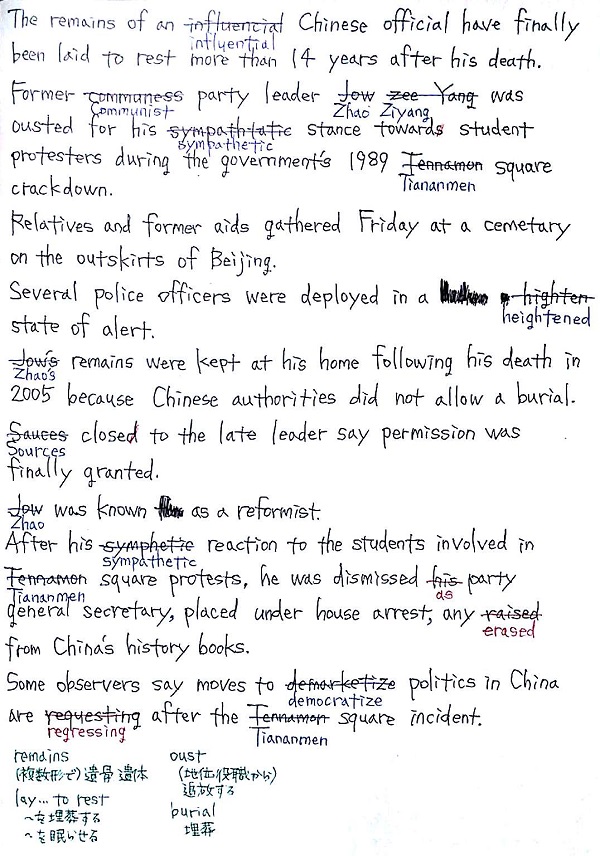 The remains of an influencial Chinese official have finally
influential
been laid to rest more than 14 years after his death.
Former communess party leader Jow zee Yang was
Communist Zhao Ziyang
ousted for his sympathtatic stance towards student
sympathetic
protesters during the government's 1989 Tennamon square
Tiananmen
crackdown.
Relatives and former aids gathered Friday at a cemetary
on the outskirts of Beijing.
Several police officers were deployed in a highten
heightened
state of alert.
Jow's remains were kept at his home following his death in
Zhao's
2005 because Chinese authorities did not allow a burial.
Sauces closed to the late leader say permission was
Sources
finally granted.
Jow was known as a reformist.
Zhao
After his symphetic reaction to the students involved in
sympathetic
Tennamon square protests, he was dismissed his party
Tiananmen as
general secretary, placed under house arrest, any raised
erased
from China's history books.
Some observers say moves to demarketize politics in China
democratize
are requesting after the Tennamon square incident.
regressing Tiananmen
remains
(複数形で) 遺骨 遺体
lay... to rest
〜を埋葬する
〜を眠らせる
oust
(地位・役職から)
追放する
burial
埋葬